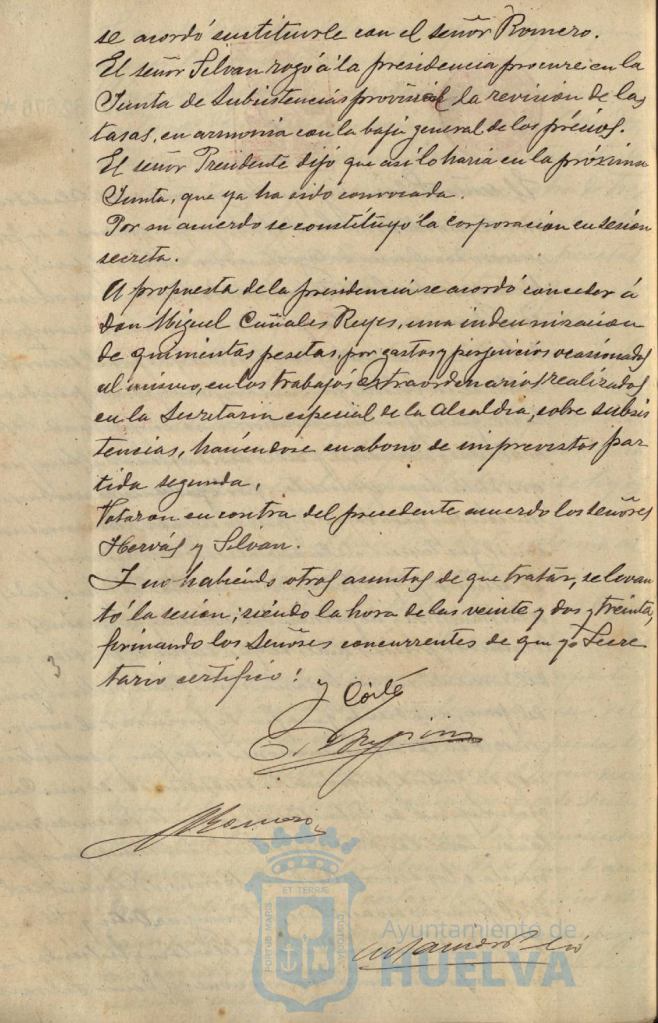 se acordó sustituirle con el señor Romero.
El señor Silvan rogó á la presidencia procure en la
Junta de Subsistencias provincial la revision de las
tasas, en armonia con la baja general de los précios.
El señor Presidente dijo que asi lo haria en la próxima
Junta, que ya ha sido convocada.
Por su acuerdo se constituyo la corporacion en sesion
secreta.
A propuesta de la presidencia se acordó conceder á
Don Miguel Cañales Reyes, una indemnizacion
de quinientas pesetas, por gastos y perjuicios ocasionados
al mismo, en los trabajos extraordinarios realizados
en la Secretaria especial de la Alcaldia, sobre subsis
tencias, haciendose su abono de imprevistos par
tida segunda.
Votaron en contra del precedente acuerdo los señores
Hervás y Silvan.
Y no habiendo otros asuntos de que tratar, se levan
tó la sesion; siendo la hora de las veinte y dos y treinta,
firmando los Señores concurrentes de que yo Secre
tario certifico:
3
y Cortés
Romero
ET TERRAE
PORTUS MARIS
CUSTODIA
Ayuntamiento de
HUELVA